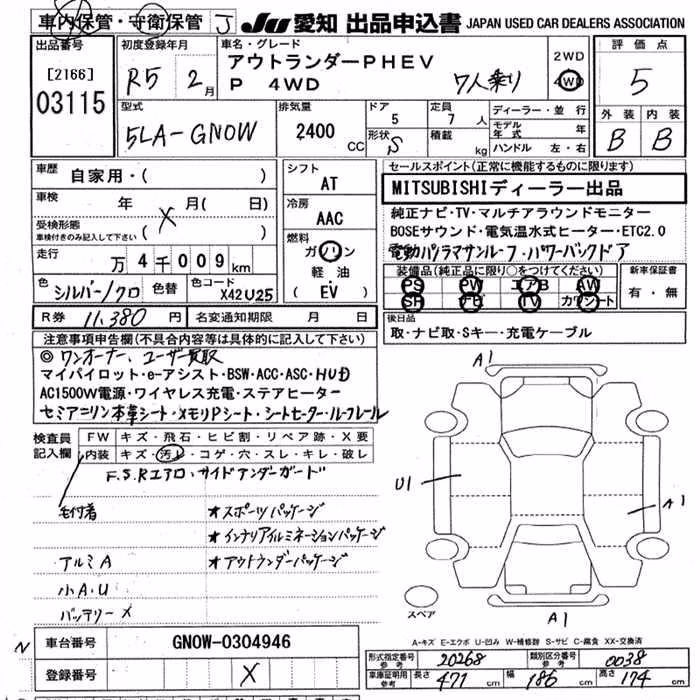 車内保管・守衛保管 J JU 愛知 出品申込書 JAPAN USED CAR DEALERS ASSOCIATION
出品番号 [2166] 03115
初度登録年月 R5 年 2月
車名・グレード アウトランダーPHEV
P 4WD 7人乗り
2WD 4WD
評価点 5
外装 B 内装 B
型式 5LA-GN0W
排気量 2400 CC
ドア 5 形状 S
定員 7 人 積載 kg
ディーラー・並行
モデル年式 年
ハンドル 左・右
車歴 自家用・( )
車検 年 月( 日)
受検形態 車検付きのみ記入して下さい ( X )
走行 万4千009km
色 シルバー/クロ 色替 色コード X42U25
シフト AT
冷房 AAC
燃料 ガソリン
軽油
( EV )
R券 11,380 円 名変通知期限 月 日
セールスポイント(正常に機能するものに限ります)
MITSUBISHIディーラー出品
純正ナビ・TV・マルチアラウンドモニター
BOSEサウンド・電気温水式ヒーター・ETC2.0
電動パノラマサンルーフ・パワーバックドア
装備品(純正品に限り○をつけてください)
PS PW エアB AW
SR TV カワシート
新車保証書 有・無
後日品
取・ナビ取・Sキー・充電ケーブル
注意事項申告欄(不具合内容等は具体的に記入して下さい)
◎ワンオーナー、ユーザー買取
マイパイロット・e-アシスト・BSW・ACC・ASC・HUD
AC1500W電源・ワイヤレス充電・ステアヒーター
セミアニリン本革シート・メモリPシート・シートヒーター・ルーフレール
検査員記入欄
FW キズ・飛石・ヒビ割・リペア跡・X要
内装 キズ・汚レ・コゲ・穴・スレ・キレ・破レ
F.S.Rエアロ、サイドアンダーガード
毛付着 ★スポーツパッケージ
★インテリアイルミネーションパッケージ
アルミA ★アウトランダーパッケージ
小A.U
バッテリーX
A1
U1
A1
A1
スペア
A-キズ E-エクボ U-凹み W-補修跡 S-サビ C-腐食 XX-交換済
N 車台番号 GN0W-0304946
登録番号 X
形式指定番号 参考 20268 類別区分番号 参考 0038
車庫証明用 参考 長さ 471 cm 幅 186 cm 高さ 174 cm